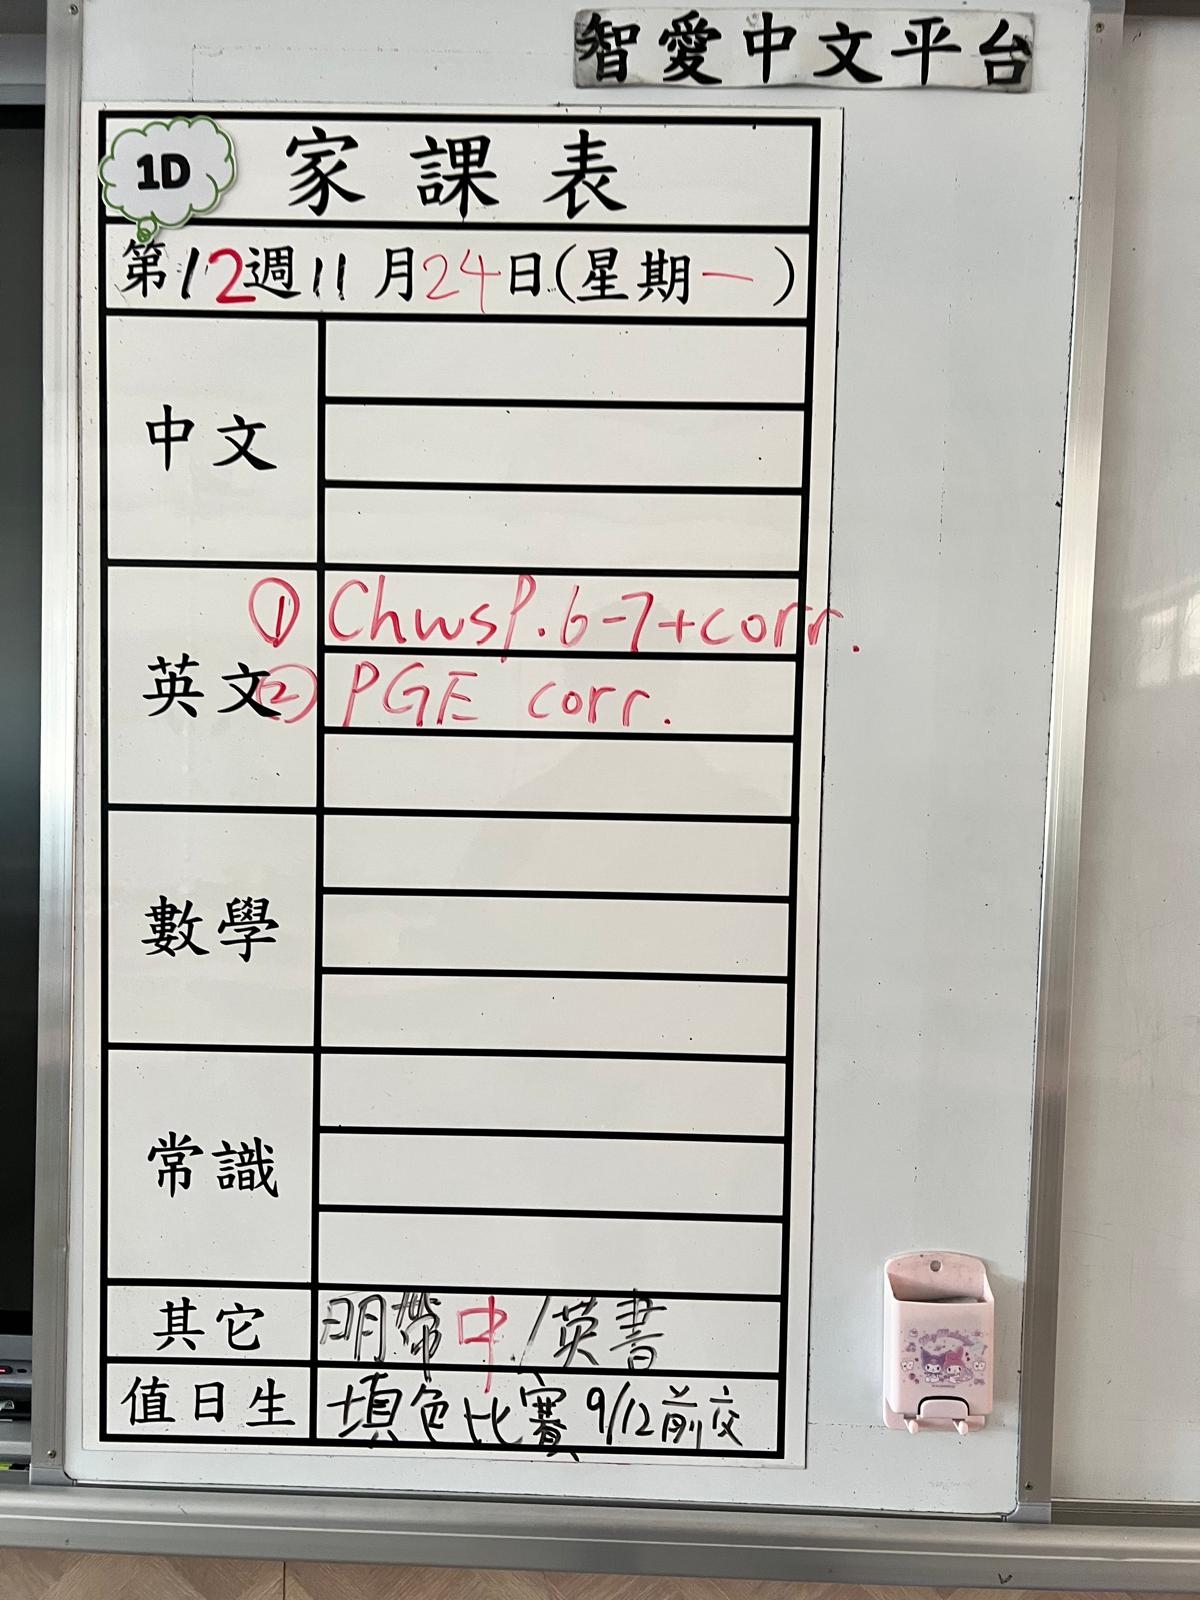 智愛中文平台
1D
家課表
第12週11月24日(星期一)
中文
英文
① Chws P.6-7+corr.
② PGE corr.
數學
常識
其它
明帶中/英書
值日生
填色比賽9/12前交